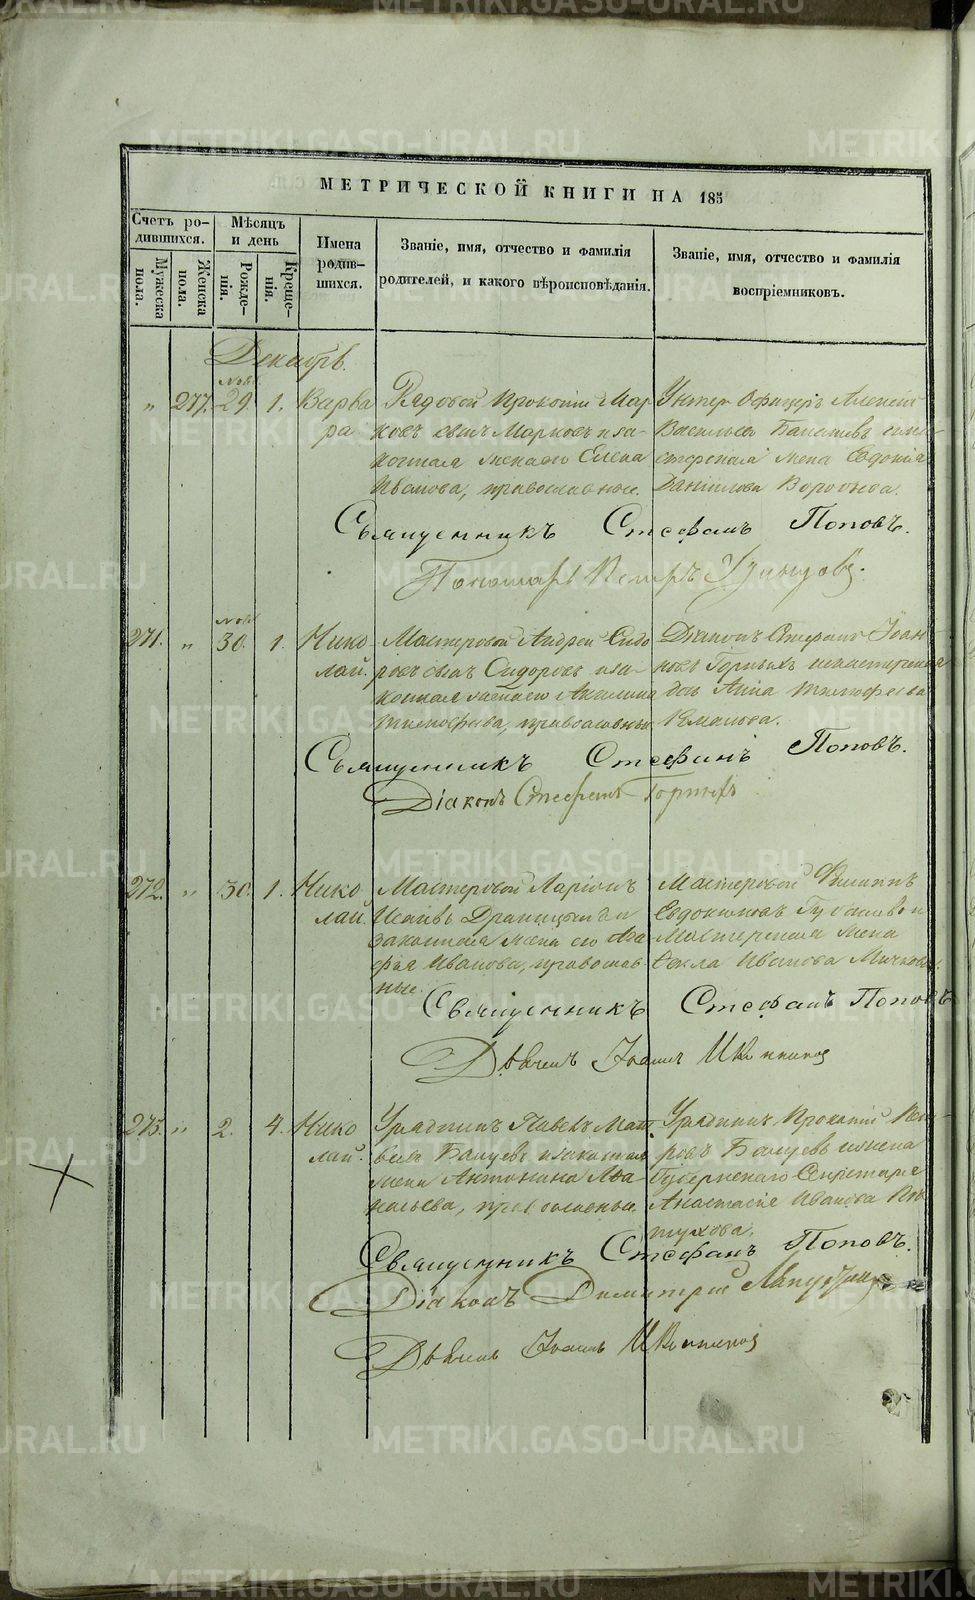 METRIKI.GASO-URAL.RU
МЕТРИЧЕСКОЙ КНИГИ НА 185
Счетъ родившихся.
Мужеска пола.
Женска пола.
Мѣсяцъ и день
Рожденія.
Крещенія.
Имена родившихся.
Званіе, имя, отчество и фамилія родителей, и какого вѣроисповѣданія.
Званіе, имя, отчество и фамилія воспріемниковъ.
Декабрь.
" 277. Нояб. 29. 1. Варва
ра
Рядовой Прокопій Мар
ковъ сынъ Марковъ и за-
конная жена его Елена
Иванова, православные.
Унтер Офицеръ Алексѣй
Васильевъ
жена Евдокія
Данилова Воробьева.
Священникъ Стефанъ Поповъ.
Пономарь Петръ
271. " Нояб. 30. 1. Нико
лай.
Мастеровой Андрей Сидо
ровъ сынъ Сидоровъ и за-
конная жена его Ангелина
Тимофѣева, православные
Діаконъ Стефанъ Іоан
новъ Горныхъ и мастерская
дочь Анна Тимофѣева
Священникъ Стефанъ Поповъ.
Діаконъ Стефанъ Горныхъ
272. " 30. 1. Нико
лай.
Мастеровой Ларіонъ
Исаевъ и
законная жена его Ага
фья Иванова, православ
ные.
Мастеровой Филиппъ
Евдокимовъ и
Мастерская жена
Ѳекла Иванова
Священникъ Стефанъ Поповъ
Дьячекъ Іоаннъ Иконниковъ
273. " 2. 4. Нико
лай.
Урядникъ Павелъ Мат
вѣевъ Балуевъ и законная
жена Антонина Афа
насьева, православные
Урядникъ Прокопій Пет
ровъ Балуевъ и жена
Губернскаго Секретаря
Анастасія Иванова Пѣ
тухова.
Священникъ Стефанъ Поповъ.
Діаконъ Димитрій
Дьячекъ Іоаннъ Иконниковъ